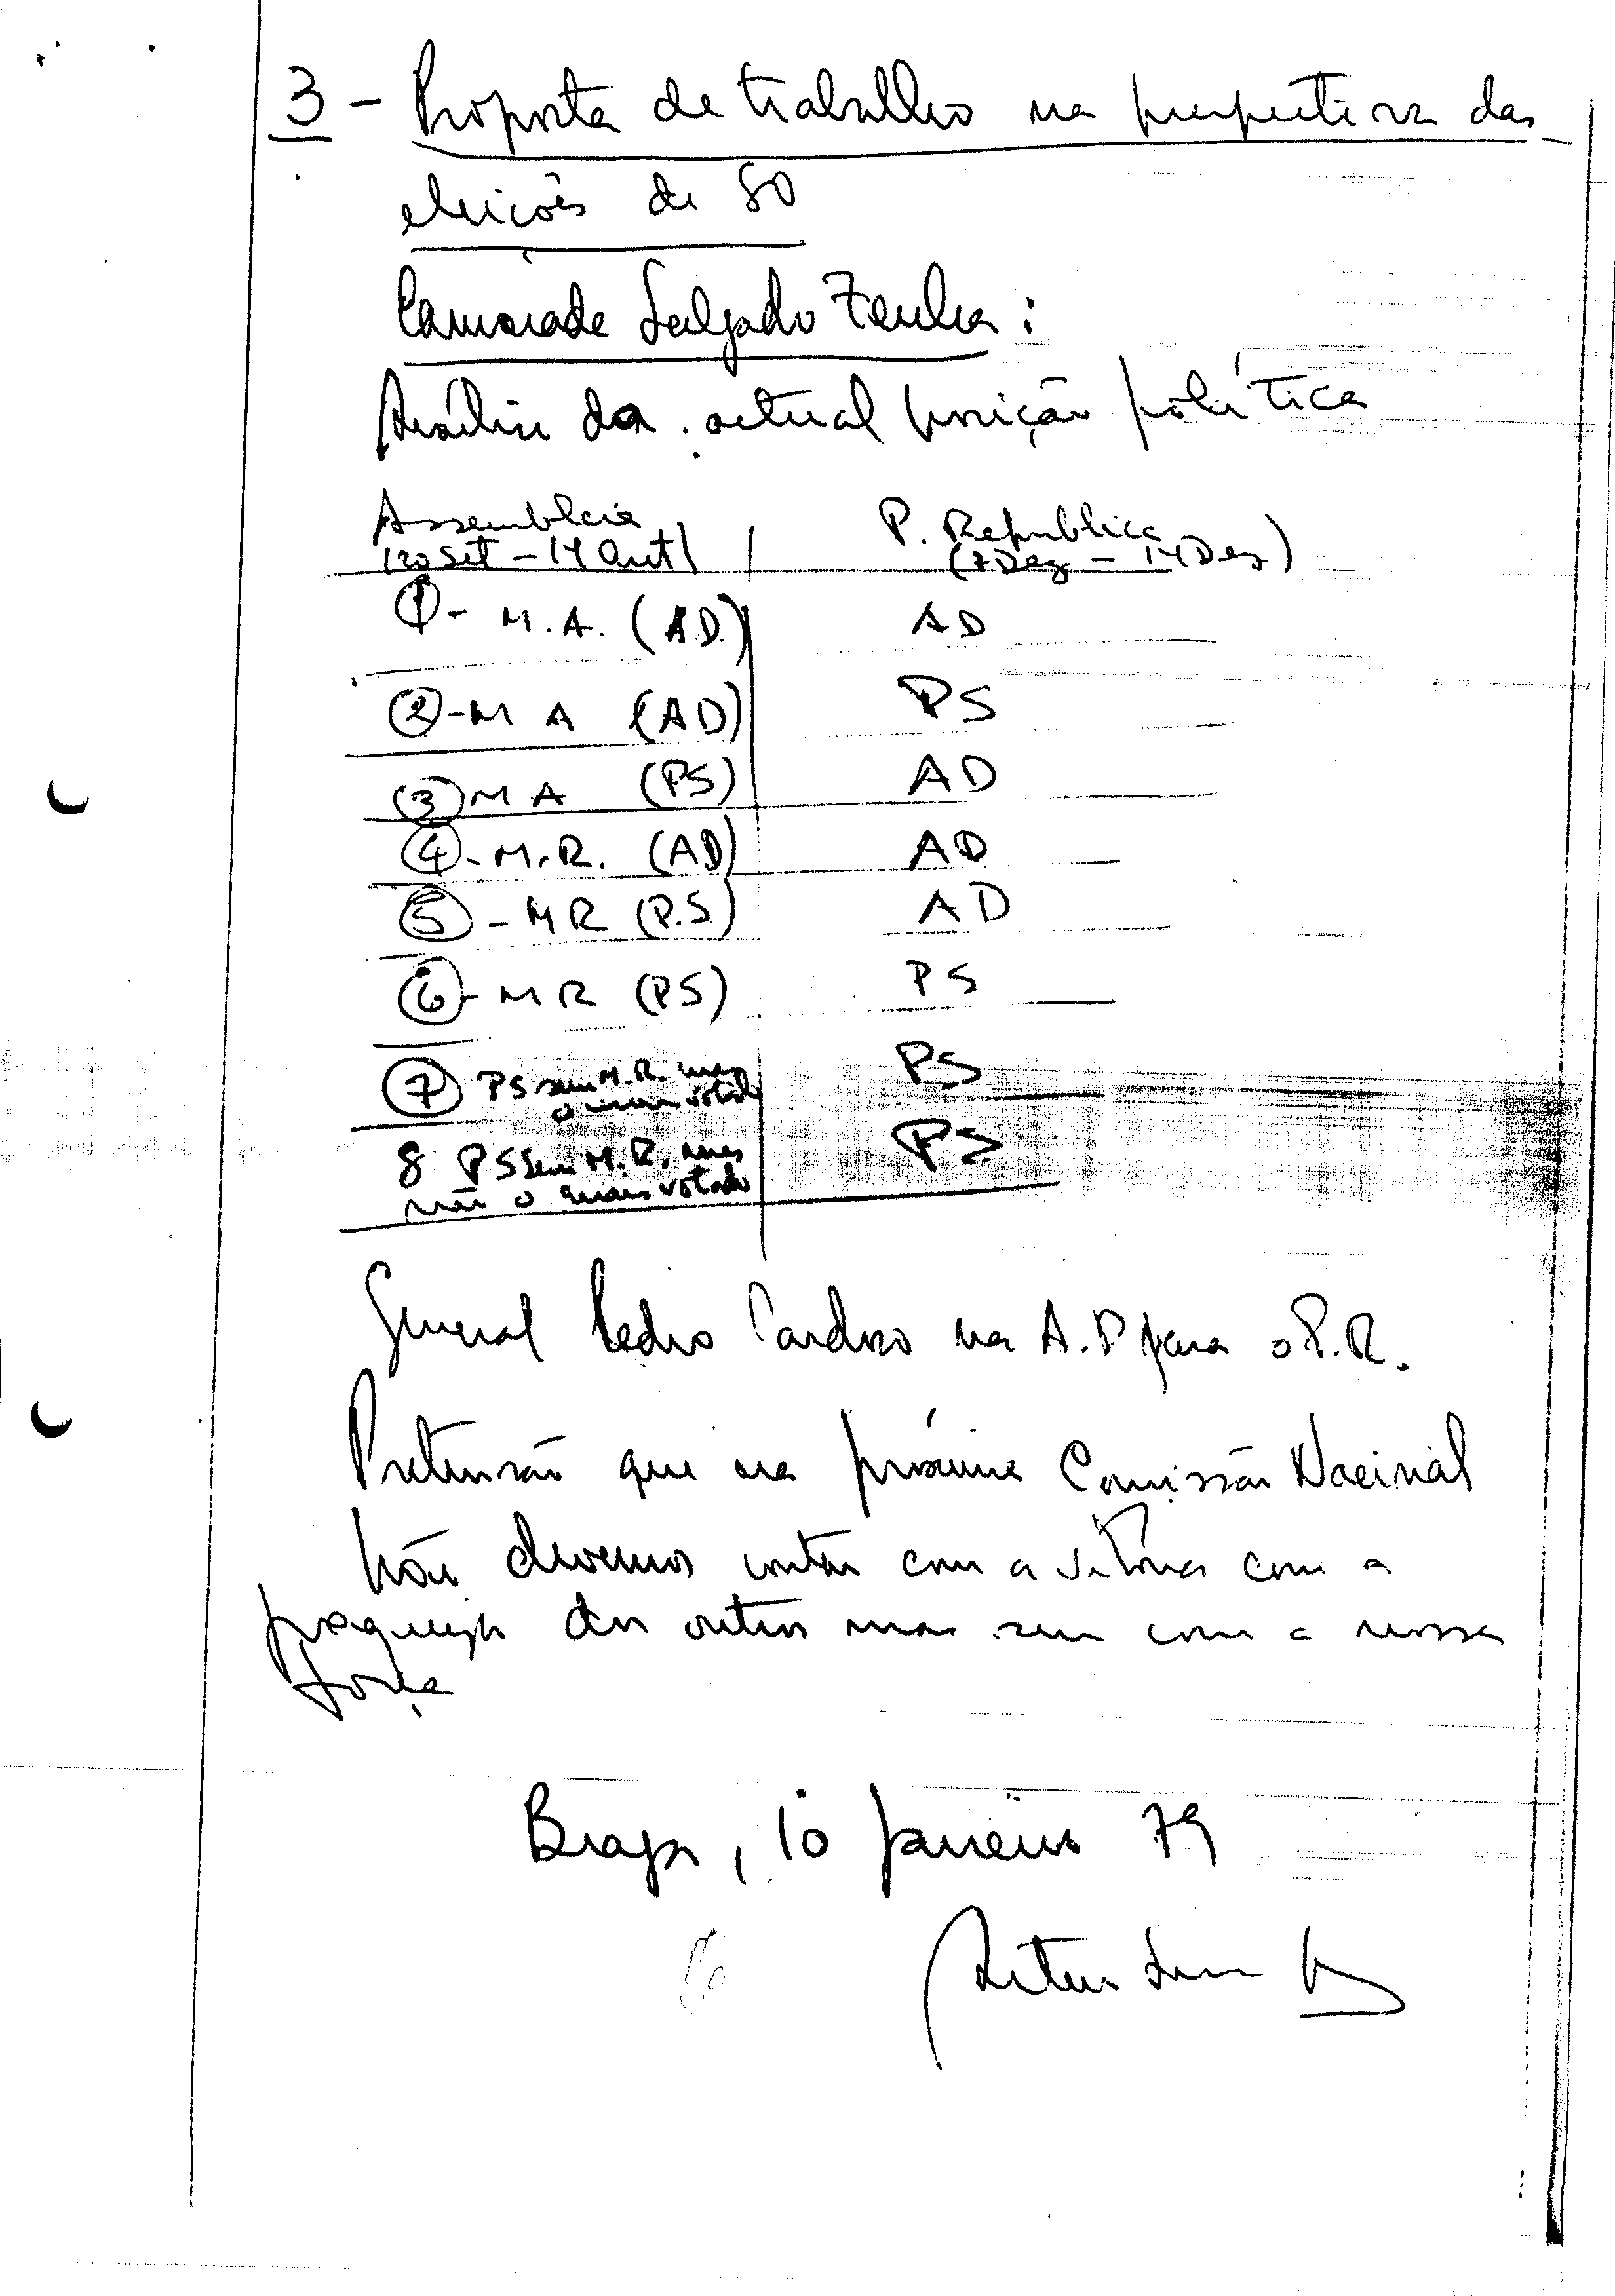 3 - Proposta de trabalho na perspectiva das
eleições de 80
Camarada Salgado Zenha:
Análise da actual posição política
Assembleia P. Republica
(20 Set - 14 Out) (7 Dez - 14 Dez)
1 - M.A. (A.D.) AD
2 - M A (AD) PS
3 M A (PS) AD
4 - M.R. (AD) AD
5 - M R (P.S) AD
6 - M R (PS) PS
7 PS sem M.R. mas PS
o mais votado
8 PS sem M.R. mas PS
não o mais votado
General Pedro Cardoso na A.D para o P.R.
Pretensão que na próxima Comissão Nacional
Não devemos contar com a vitória com a
fraqueza dos outros mas sim com a nossa
força
Braga, 10 Janeiro 79
Artur